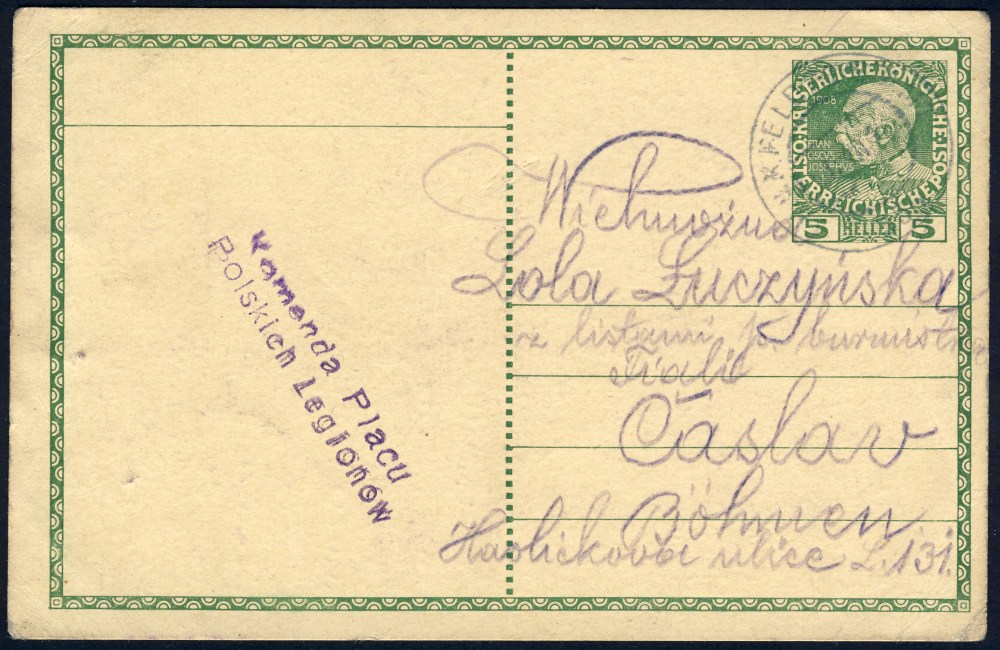 Komenda Placu
Polskich Legionów
KAISERLICHE KÖNIGLICHE
ÖSTERREICHISCHE POST
1908
FRAN
CISCVS
IOSEPHVS
5 HELLER 5
K.K. FELD
Wielmożna
Lola Łuczyńska
z listami p. burmistrz
Čáslav
Böhmen
Havličkova ulice L. 131.